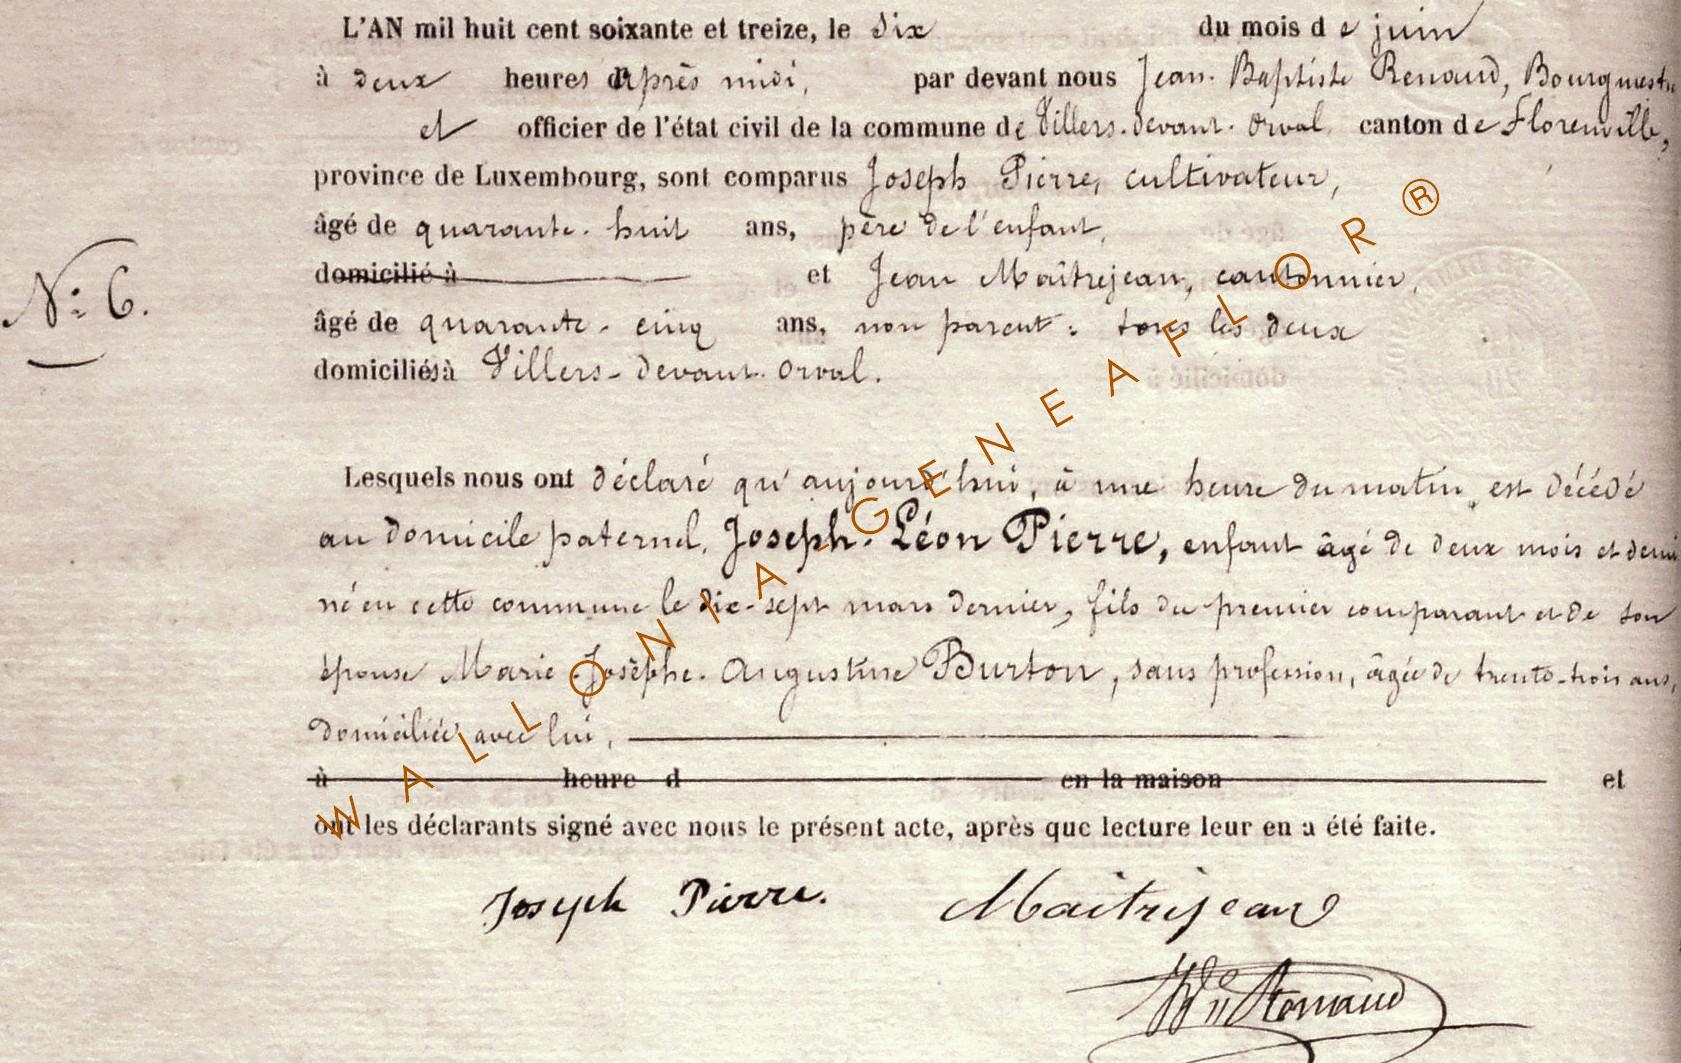 L'AN mil huit cent soixante et treize, le six du mois de juin
à deux heures d'après midi, par devant nous Jean-Baptiste Renaud, Bourgmestre
et officier de l'état civil de la commune de Villers-devant-Orval, canton de Florenville,
province de Luxembourg, sont comparus Joseph Pierre, cultivateur,
âgé de quarante-huit ans, père de l'enfant,
domicilié à et Jean Maîtrejean, cantonnier,
N° 6.
âgé de quarante-cinq ans, non parent : tous les deux
domiciliés à Villers-devant-Orval.
Lesquels nous ont déclaré qu'aujourd'hui, à une heure du matin, est décédé
au domicile paternel, Joseph-Léon Pierre, enfant âgé de deux mois et demi
né en cette commune le dix-sept mars dernier, fils du premier comparant et de son
épouse Marie-Josèphe-Augustine Burton, sans profession, âgée de trente-trois ans,
domiciliée avec lui,
à heure d en la maison et
ont les déclarants signé avec nous le présent acte, après que lecture leur en a été faite.
Joseph Pierre. Maitrejean
Renaud
WALLONIA GENEAFLOR ®